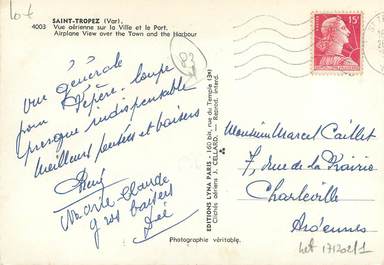 Lot
SAINT-TROPEZ (Var).
4003 Vue aérienne sur la Ville et le Port.
Airplane View over the Town and the Harbour
83
15F
vue générale
pour Pépère. loupe
presque indispensable
meilleures pensées et baisers
Marie Claude
gros baisers
Dée
EDITIONS LYNA PARIS - (60 Bis, rue du Temple (3e)
Clichés aériens J. CELLARD. - Reprod. interd.
Monsieur Marcel Caillet
7, rue de la Prairie
Charleville
Ardennes
Photographie véritable.